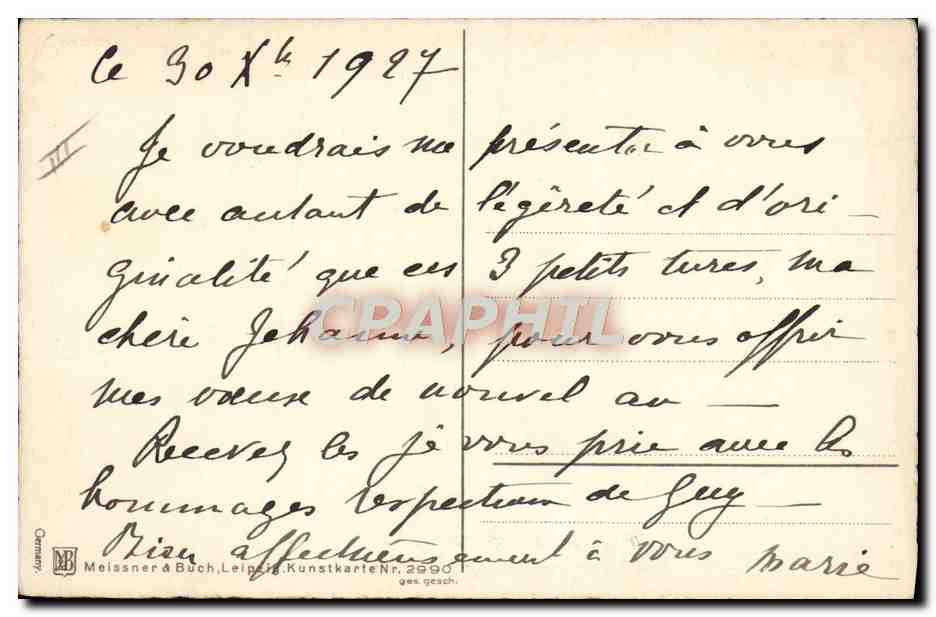 Ce 30 Xbre 1927
III
Je voudrais me présenter à vous
avec autant de légèreté et d'ori-
ginalité que ces 3 petits turcs, ma
chère Jehanne, pour vous offrir
mes voeux de nouvel an —
Recevez les je vous prie avec les
hommages respectueux de Guy —
Bien affectueusement à vous
Marie
CPARPHIL
Germany.
MB
Meissner & Buch, Leipzig. Kunstkarte Nr. 2990
ges. gesch.